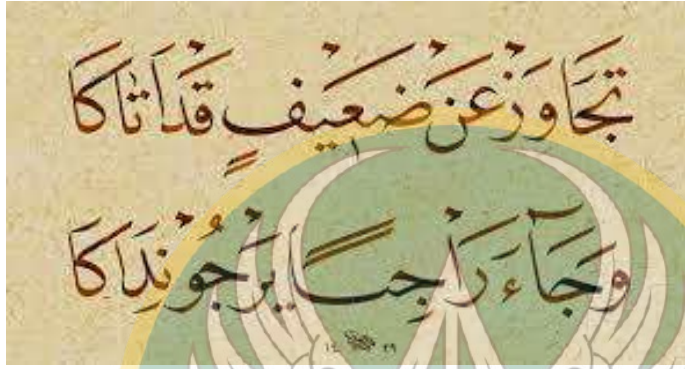 تَجَاوَزْ عَنْ ضَعِيْفٍ قَدْ اَتَاكَا
وَجَآءَ رَاْجِيًا يَرْجُوْ نِدَاكَا